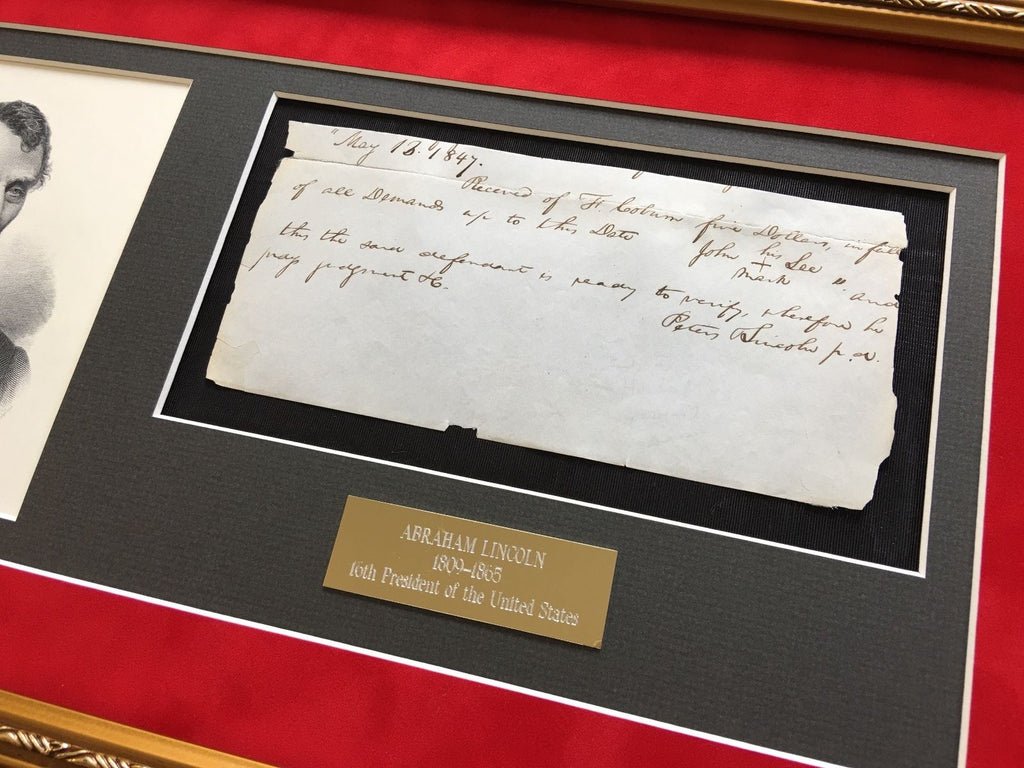 "May 13. 1847.
Received of F. Coburn five Dollars, in full
of all Demands up to this Date
John his + mark Lee " and
this the said defendant is ready to verify, wherefore he
pray judgment &c.
Peters & Lincoln p. d.
ABRAHAM LINCOLN
1809–1865
16th President of the United States